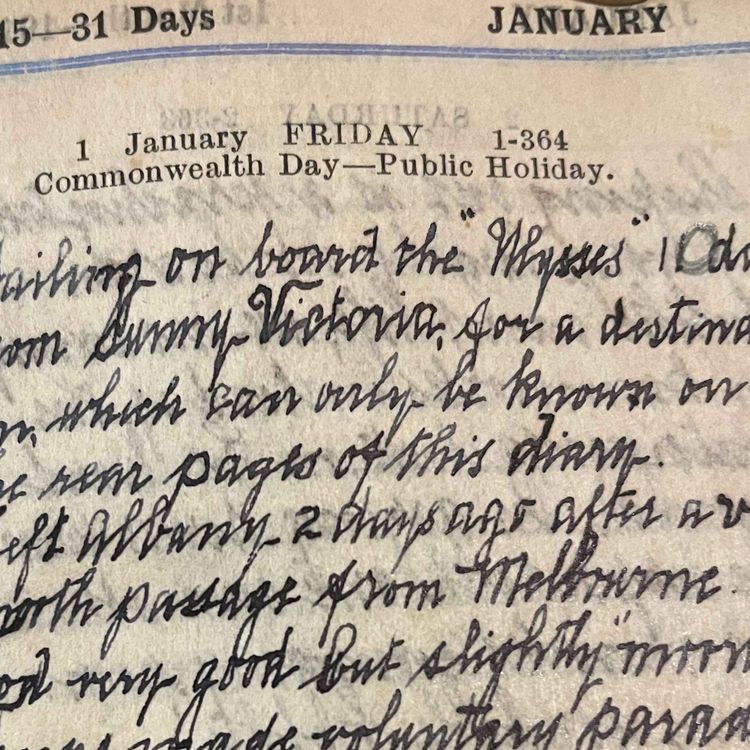 15—31 Days JANUARY
1 January FRIDAY 1-364
Commonwealth Day—Public Holiday.
ailing on board the "Ulysses" 10 da
om Sunny Victoria, for a destina
n, which can only be known on
e rear pages of this diary.
eft Albany 2 days ago after a v
ooth passage from Melbourne.
od very good but slightly "mono
made voluntary parad